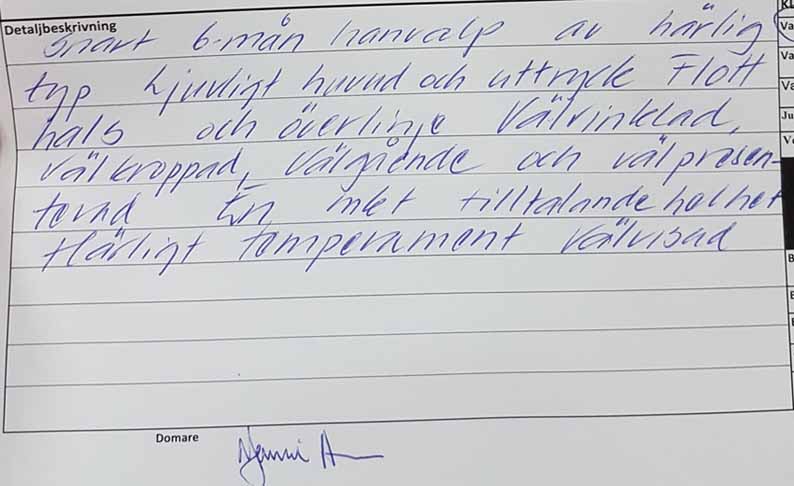 Detaljbeskrivning
Snart 6-mån hanvalp av härlig
typ Ljuvligt huvud och uttryck Flott
hals och överlinje Välvinklad,
välkroppad, Välgående och välpresen-
terad En mkt tilltalande helhet
Härligt temperament Välvisad
Domare